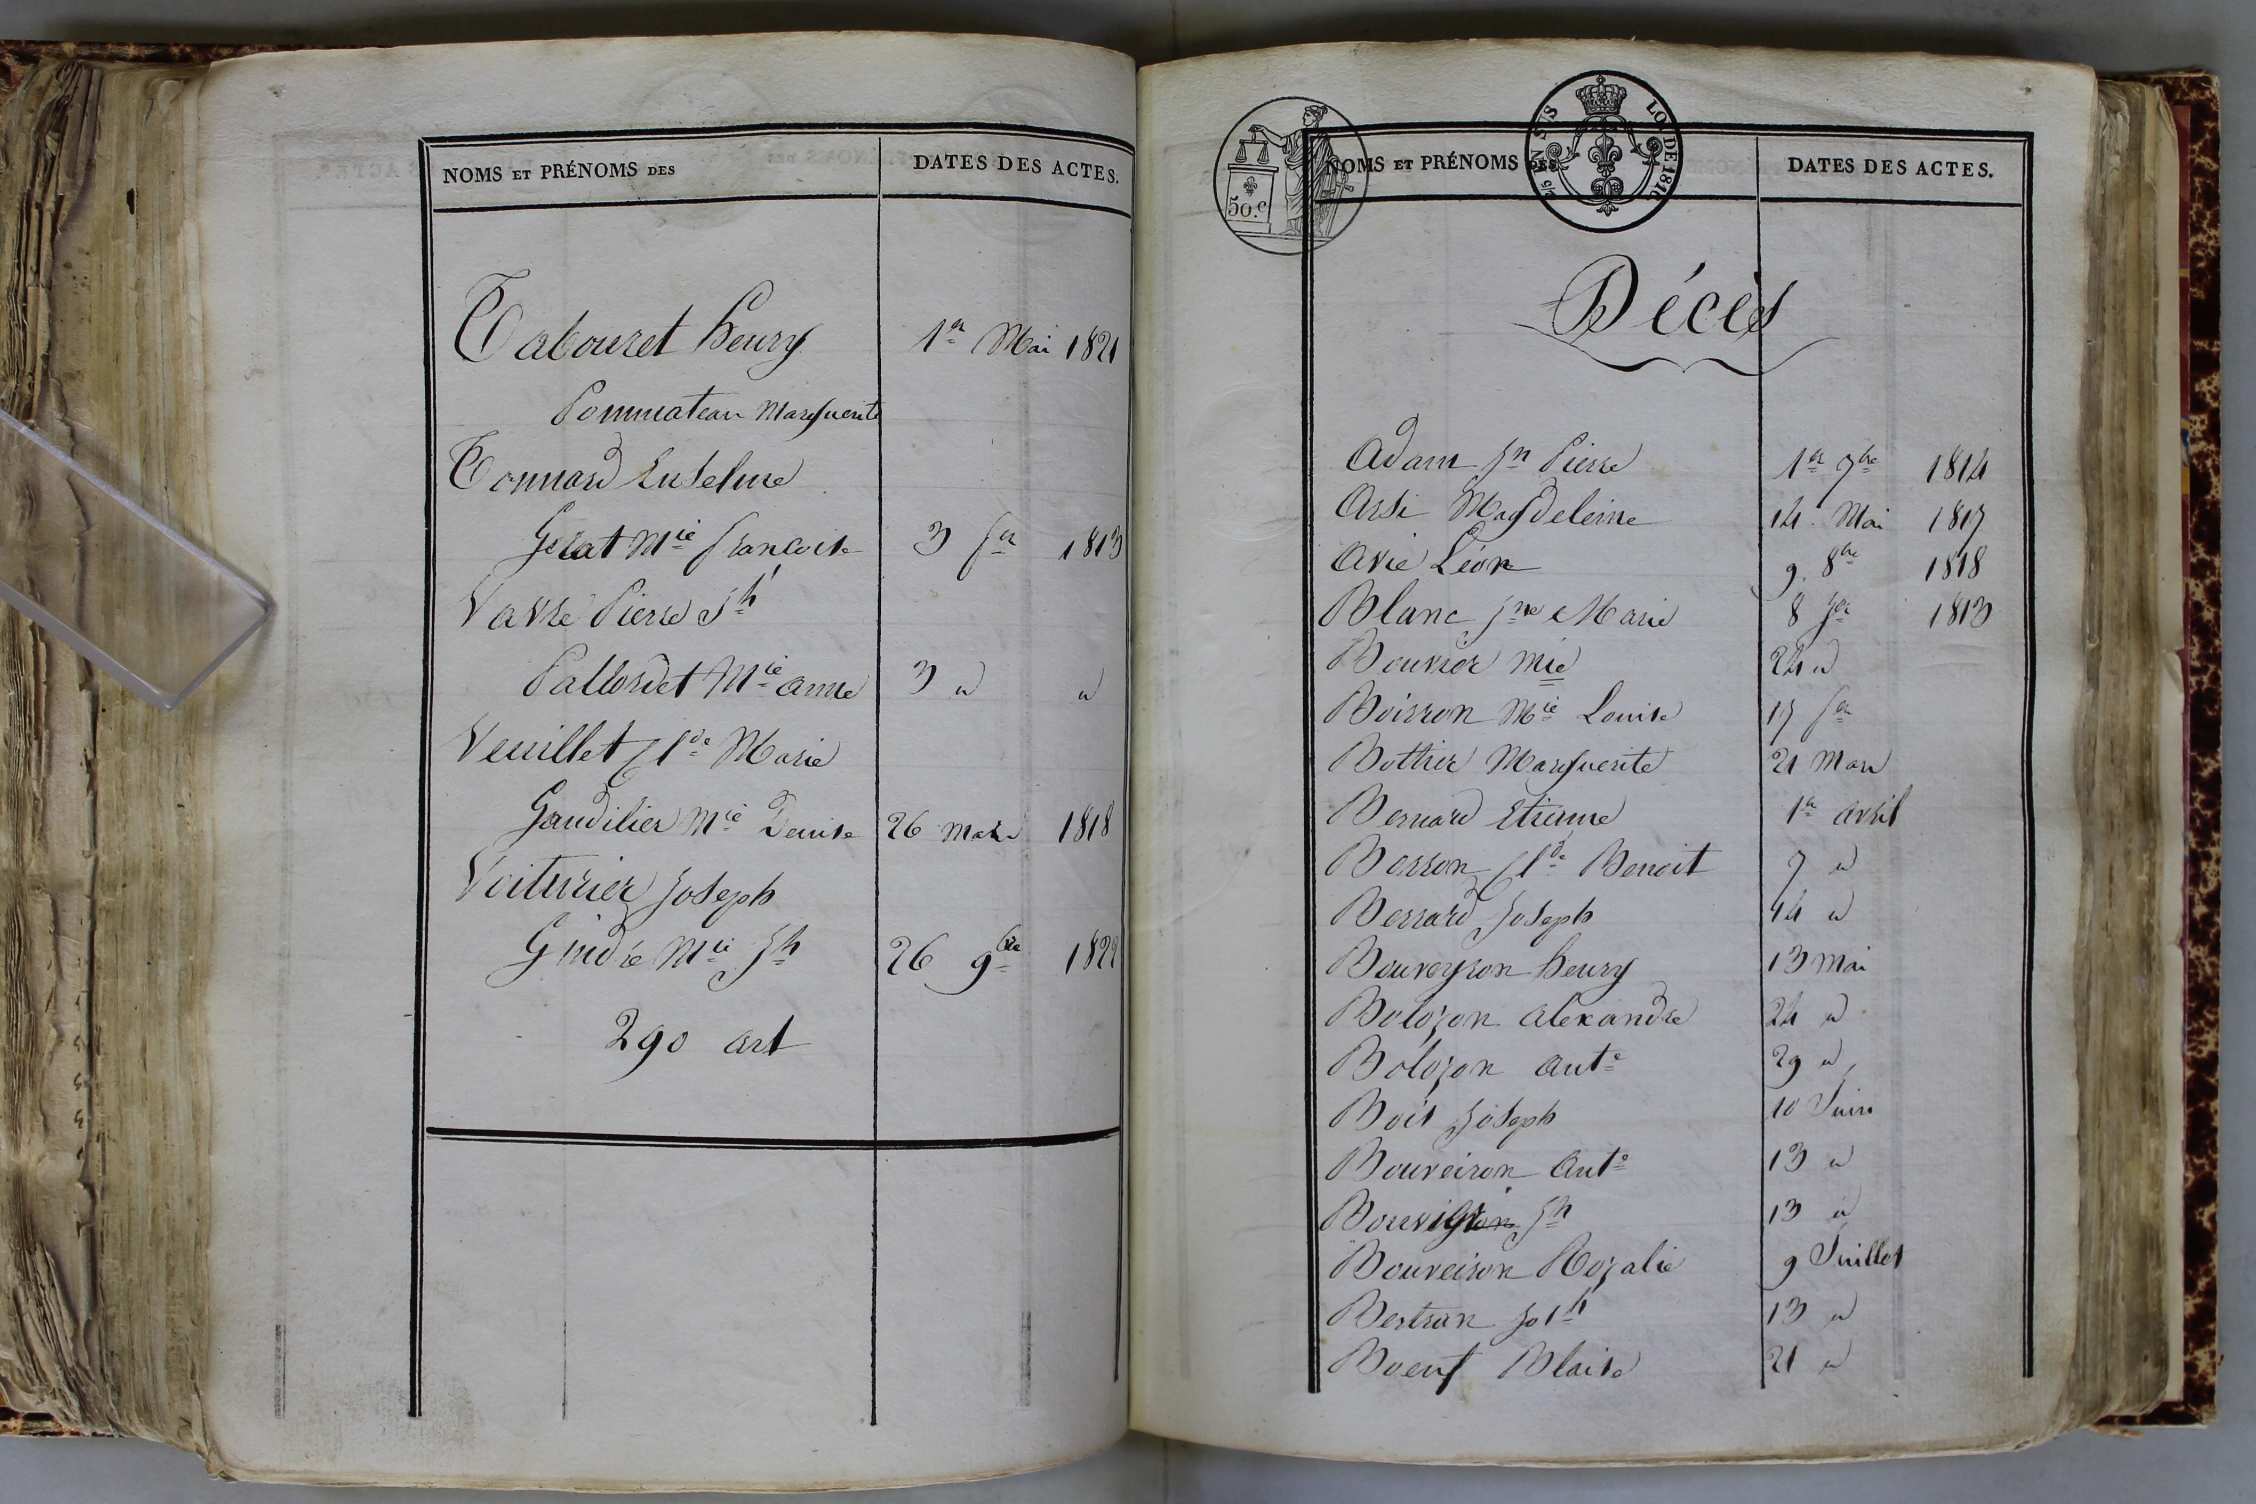 NOMS ET PRÉNOMS DES
DATES DES ACTES.
Tabouret henry 1er Mai 1821
Pommateau Marguerite
Tonnard Enselme
Gerat Mie francoise 3 fer 1813
Vavre Pierre Jh
Pallordet Mie anne 3 " "
Veuillet Cl de Marie
Gaudilier Mie Denise 26 mars 1818
Voiturier Joseph
Gindre Mie Jh 26 9bre 1822
290 art
50.c
5/5 EN SUS
LOI DE 1816
NOMS ET PRÉNOMS DES
DATES DES ACTES.
Décès
Adam Jn Pierre 1er 7bre 1814
Arsi Magdeleine 14 Mai 1817
Avie Léon 9. 8bre 1818
Blanc Jne Marie 8 Jer 1813
Bouvier Mie 24 "
Boisson Mie Louise 17 fer
Bothier Marguerite 21 Mars
Bernard Etienne 1er avril
Bosson Cl de Benoit 7 "
Berrard Joseph 14 "
Bouveyron henry 13 Mai
Bolozon alexandre 24 "
Bolozon ante 29 "
Bois Joseph 10 Juin
Bouveiron ante 13 "
Jh 13 "
Bouveiron Rozalie 9 Juillet
Bertran Josh 13 "
Boeuf Blaise 21 "